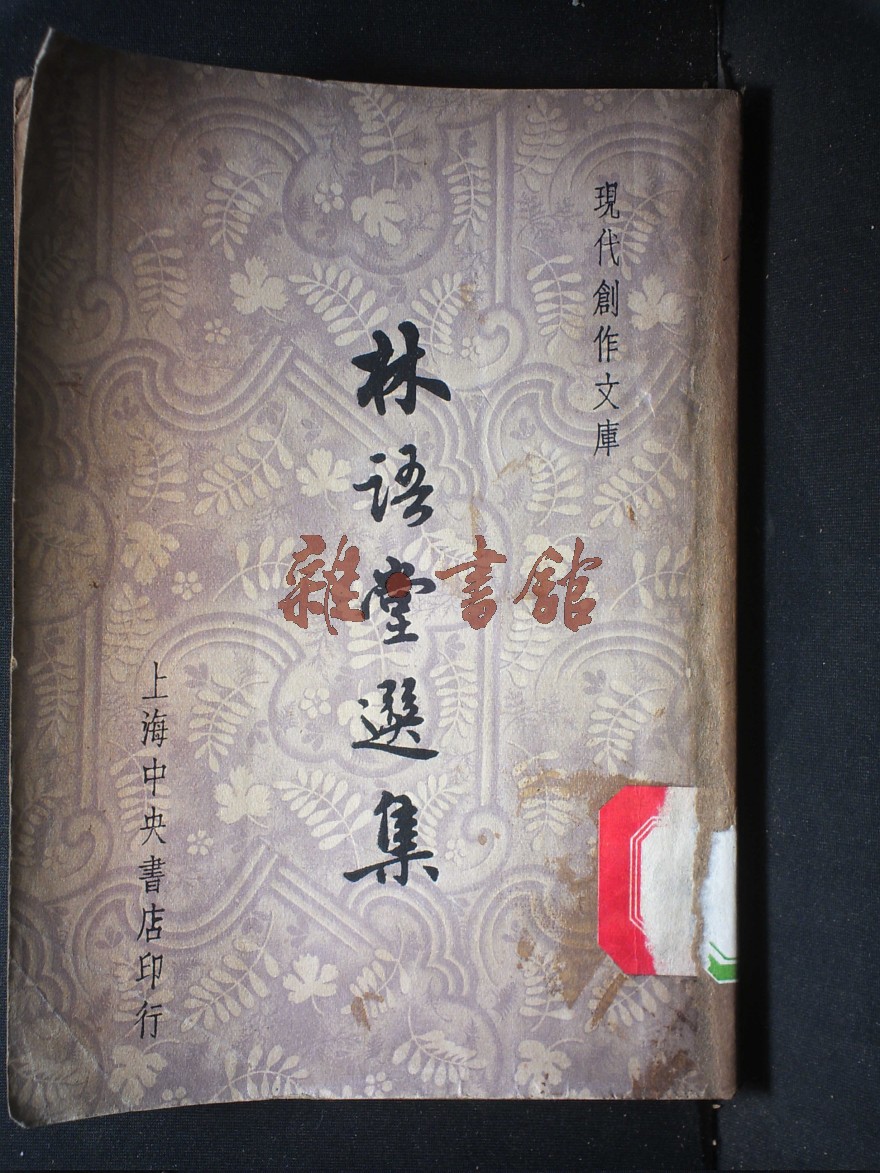 現代創作文庫
林語堂選集
上海中央書店印行
雜書館